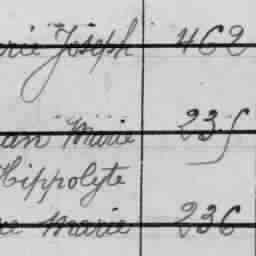 Joseph 462
Marie 235
Hippolyte
Marie 236